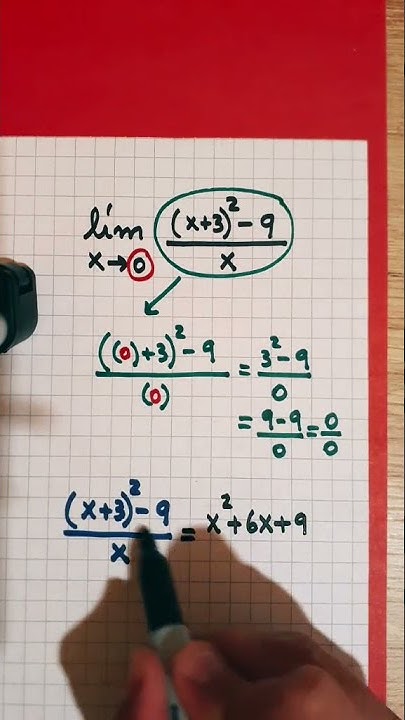 lím (x+3)² - 9 / x
x→0
((0)+3)² - 9 / (0) = 3² - 9 / 0
= 9 - 9 / 0 = 0 / 0
(x+3)² - 9 / x = x² + 6x + 9